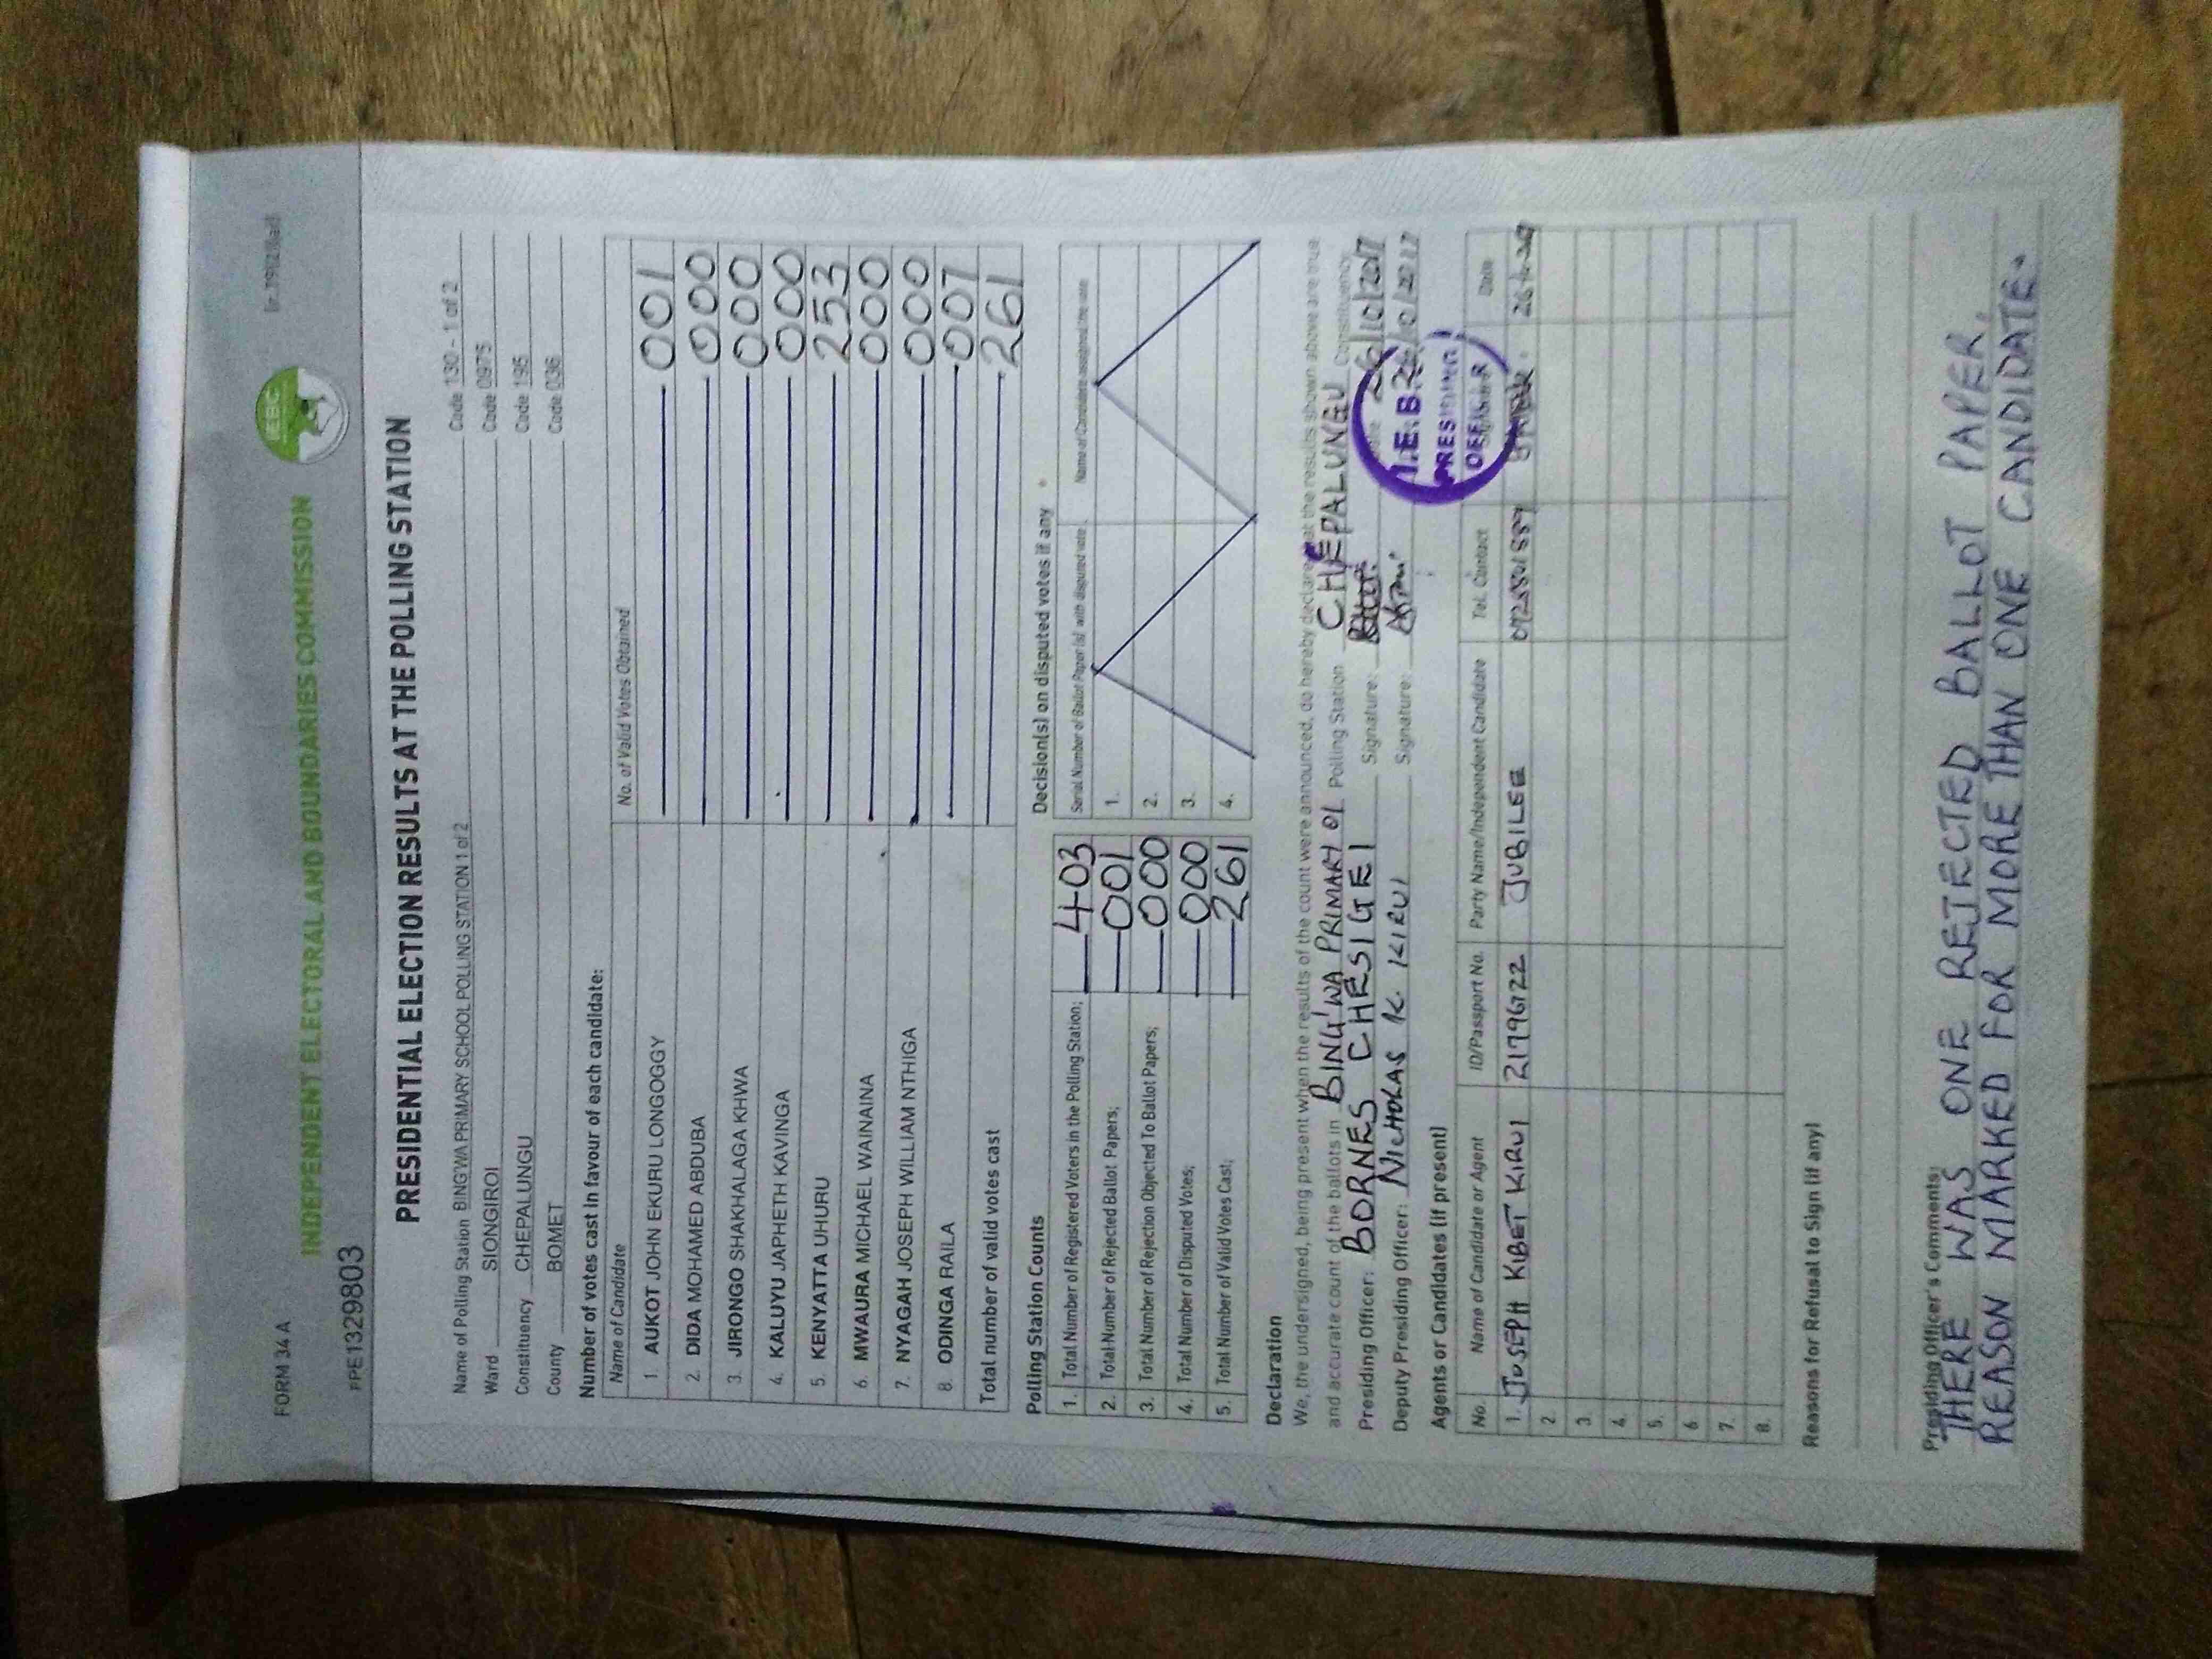 FORM 34 A
INDEPENDENT ELECTORAL AND BOUNDARIES COMMISSION
IEBC
PPE1329803
PRESIDENTIAL ELECTION RESULTS AT THE POLLING STATION
Name of Polling Station BING'WA PRIMARY SCHOOL POLLING STATION 1 of 2 Code 130 - 1 of 2
Ward SIONGIROI Code 0975
Constituency CHEPALUNGU Code 195
County BOMET Code 036
Number of votes cast in favour of each candidate:
Name of Candidate No. of Valid Votes Obtained
1. AUKOT JOHN EKURU LONGOGGY 001
2. DIDA MOHAMED ABDUBA 000
3. JIRONGO SHAKHALAGA KHWA 000
4. KALUYU JAPHETH KAVINGA 000
5. KENYATTA UHURU 253
6. MWAURA MICHAEL WAINAINA 000
7. NYAGAH JOSEPH WILLIAM NTHIGA 000
8. ODINGA RAILA 007
Total number of valid votes cast 261
Polling Station Counts
1. Total Number of Registered Voters in the Polling Station; 403
2. Total Number of Rejected Ballot Papers; 001
3. Total Number of Rejection Objected To Ballot Papers; 000
4. Total Number of Disputed Votes; 000
5. Total Number of Valid Votes Cast; 261
Decision(s) on disputed votes if any
Serial Number of Ballot Paper (s) with disputed vote Name of Candidate assigned the vote
1.
2.
3.
4.
Declaration
We, the undersigned, being present when the results of the count were announced, do hereby declare that the results shown above are true
and accurate count of the ballots in BING'WA PRIMARY 01 Polling Station CHEPALUNGU Constituency
Presiding Officer: BORNES CHESIGEI Signature: 26/10/2017
Deputy Presiding Officer: NICHOLAS K. KIRUI Signature:
I.E.B.C
PRESIDING
OFFICER
Agents or Candidates (if present)
No. Name of Candidate or Agent ID/Passport No. Party Name/Independent Candidate Tel. Contact Date
1. JOSEPH KIBET KIRUI 21796722 JUBILEE
2.
3.
4.
5.
6
7.
8.
Reasons for Refusal to Sign (if any)
Presiding Officer's Comments:
THERE WAS ONE REJECTED BALLOT PAPER.
REASON MARKED FOR MORE THAN ONE CANDIDATE.